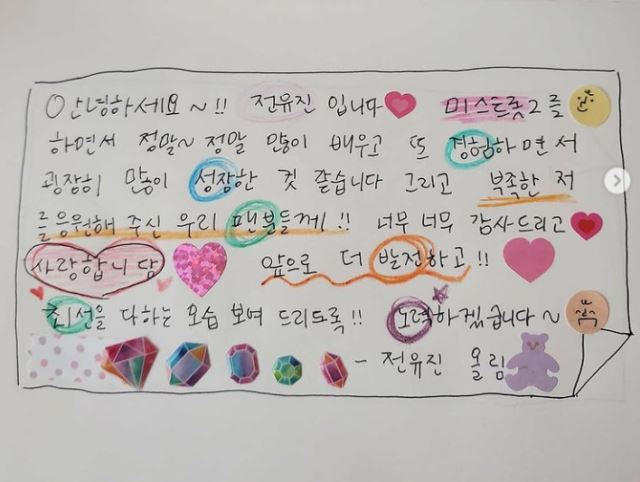 안녕하세요~!! 전유진 입니다 미스트롯2를
하면서 정말~ 정말 많이 배우고 또 경험하면서
굉장히 많이 성장한 것 같습니다 그리고 부족한 저
를 응원해 주신 우리 팬분들께!! 너무 너무 감사드리고
사랑합니담 앞으로 더 발전하고!!
최선을 다하는 모습 보여 드리도록!! 노력하겠습니다~
- 전유진 올림